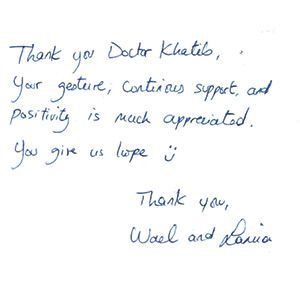 Thank you Doctor Khatib,
Your gesture, continious support, and
positivity is much appreciated.
You give us hope ü
Thank you,
Wael and Rania